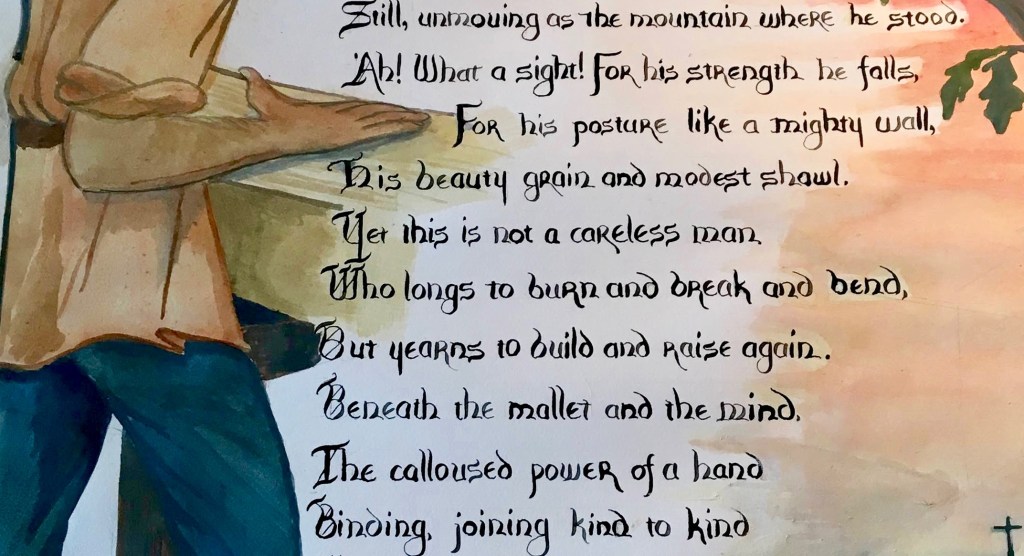 Still, unmoving as the mountain where he stood.
Ah! What a sight! For his strength he falls,
For his posture like a mighty wall,
His beauty grain and modest shawl.
Yet this is not a careless man
Who longs to burn and break and bend,
But yearns to build and raise again.
Beneath the mallet and the mind,
The calloused power of a hand
Binding, joining kind to kind